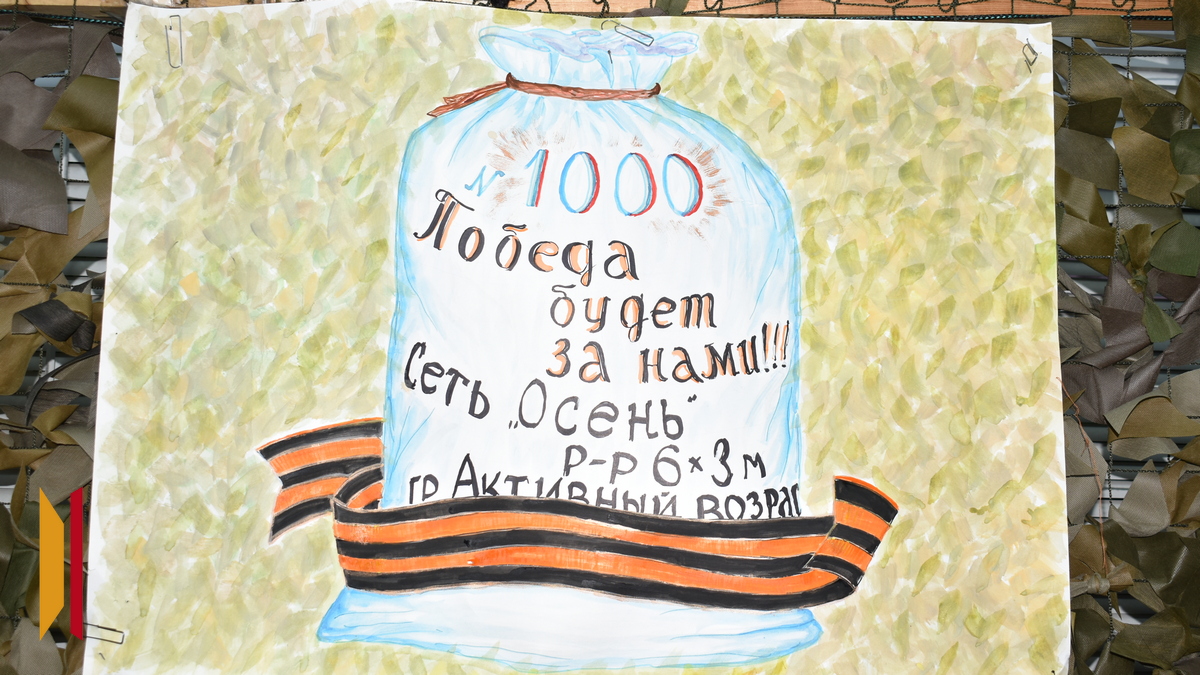 N 1000
Победа
будет
за нами!!!
Сеть „Осень"
р-р 6×3 м
гр Активный возрас